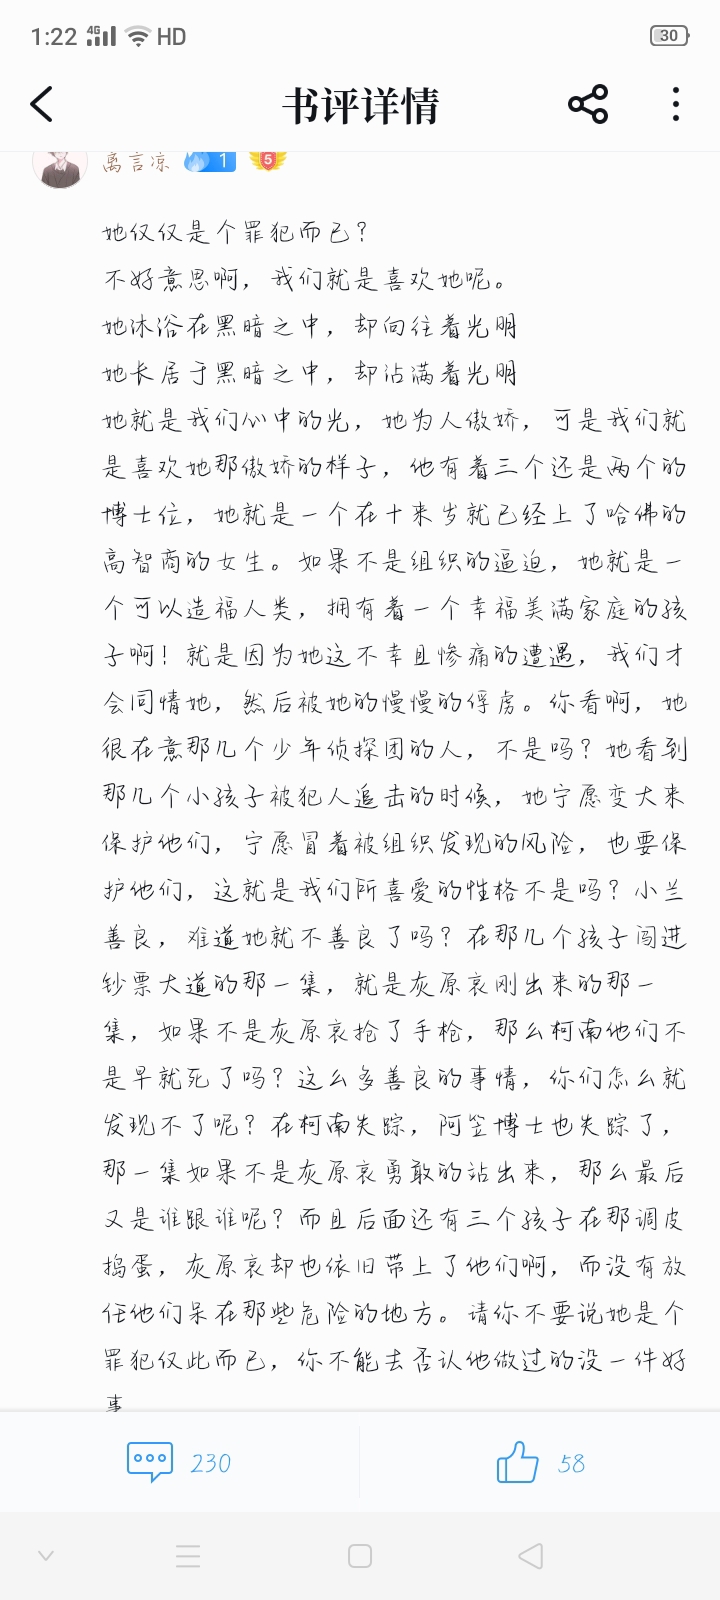 1:22 4G HD 30
书评详情
离言凉 1 5
她仅仅是个罪犯而已？
不好意思啊，我们就是喜欢她呢。
她沐浴在黑暗之中，却向往着光明
她长居于黑暗之中，却沾满着光明
她就是我们心中的光，她为人傲娇，可是我们就
是喜欢她那傲娇的样子，他有着三个还是两个的
博士位，她就是一个在十来岁就已经上了哈佛的
高智商的女生。如果不是组织的逼迫，她就是一
个可以造福人类，拥有着一个幸福美满家庭的孩
子啊！就是因为她这不幸且惨痛的遭遇，我们才
会同情她，然后被她的慢慢的俘虏。你看啊，她
很在意那几个少年侦探团的人，不是吗？她看到
那几个小孩子被犯人追击的时候，她宁愿变大来
保护他们，宁愿冒着被组织发现的风险，也要保
护他们，这就是我们所喜爱的性格不是吗？小兰
善良，难道她就不善良了吗？在那几个孩子闯进
钞票大道的那一集，就是灰原哀刚出来的那一
集，如果不是灰原哀抢了手枪，那么柯南他们不
是早就死了吗？这么多善良的事情，你们怎么就
发现不了呢？在柯南失踪，阿笠博士也失踪了，
那一集如果不是灰原哀勇敢的站出来，那么最后
又是谁跟谁呢？而且后面还有三个孩子在那调皮
捣蛋，灰原哀却也依旧带上了他们啊，而没有放
任他们呆在那些危险的地方。请你不要说她是个
罪犯仅此而已，你不能去否认他做过的没一件好
事
230 58